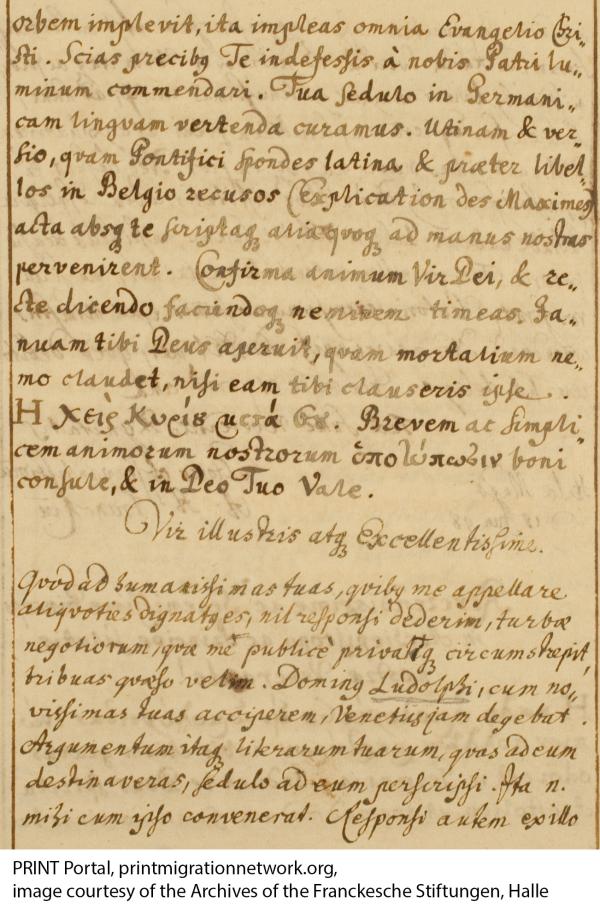 orbem implevit, ita impleas omnia Evangelio Chri„
sti. Scias precibꝰ Te indefessis à nobis Patri lu„
minum commendari. Tua sedulo in Germani„
cam lingvam vertenda curamus. Utinam & ver„
sio, qvam Pontifici spondes latina & præter libel„
los in Belgio recusos (explication des Maximes)
acta absqꝫ te scriptaqꝫ alia qvoqꝫ ad manus nostras
pervenirent. Confirma animum Vir Dei, & re„
cte dicendo faciendoqꝫ neminem timeas. Ja„
nuam tibi Deus aperuit, qvam mortalium ne„
mo claudet, nisi eam tibi clauseris ipse.
Η χεὶρ Κυρίȣ μετά σȣ. Brevem ac simpli„
cem animorum nostrorum ὑποτύπωσιν boni
consule, & in Deo Tuo Vale.
Vir illustris atqꝫ Excellentissime.
Qvod ad humanissimas tuas, qvibꝰ me appellare
aliqvoties dignatꝰ es, nil responsi dederim, turbæ
negotiorum, qvæ me publicè privatimqꝫ circumstrepit,
tribuas qvæso velim. Dominꝰ Ludolphi, cum no„
vissimas tuas acciperem, Venetiis jam degebat.
Argumentum itaqꝫ literarum tuarum, qvas ad eum
destinaveras, sedulo ad eum perscripsi. Ita n.
mihi cum ipso convenerat. Responsi autem ex illo
PRINT Portal, printmigrationnetwork.org,
image courtesy of the Archives of the Franckesche Stiftungen, Halle